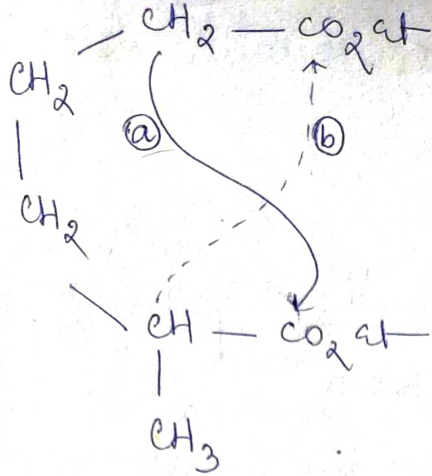 CH2 — CO2Et
CH2
(a) (b)
CH2
CH — CO2Et
CH3